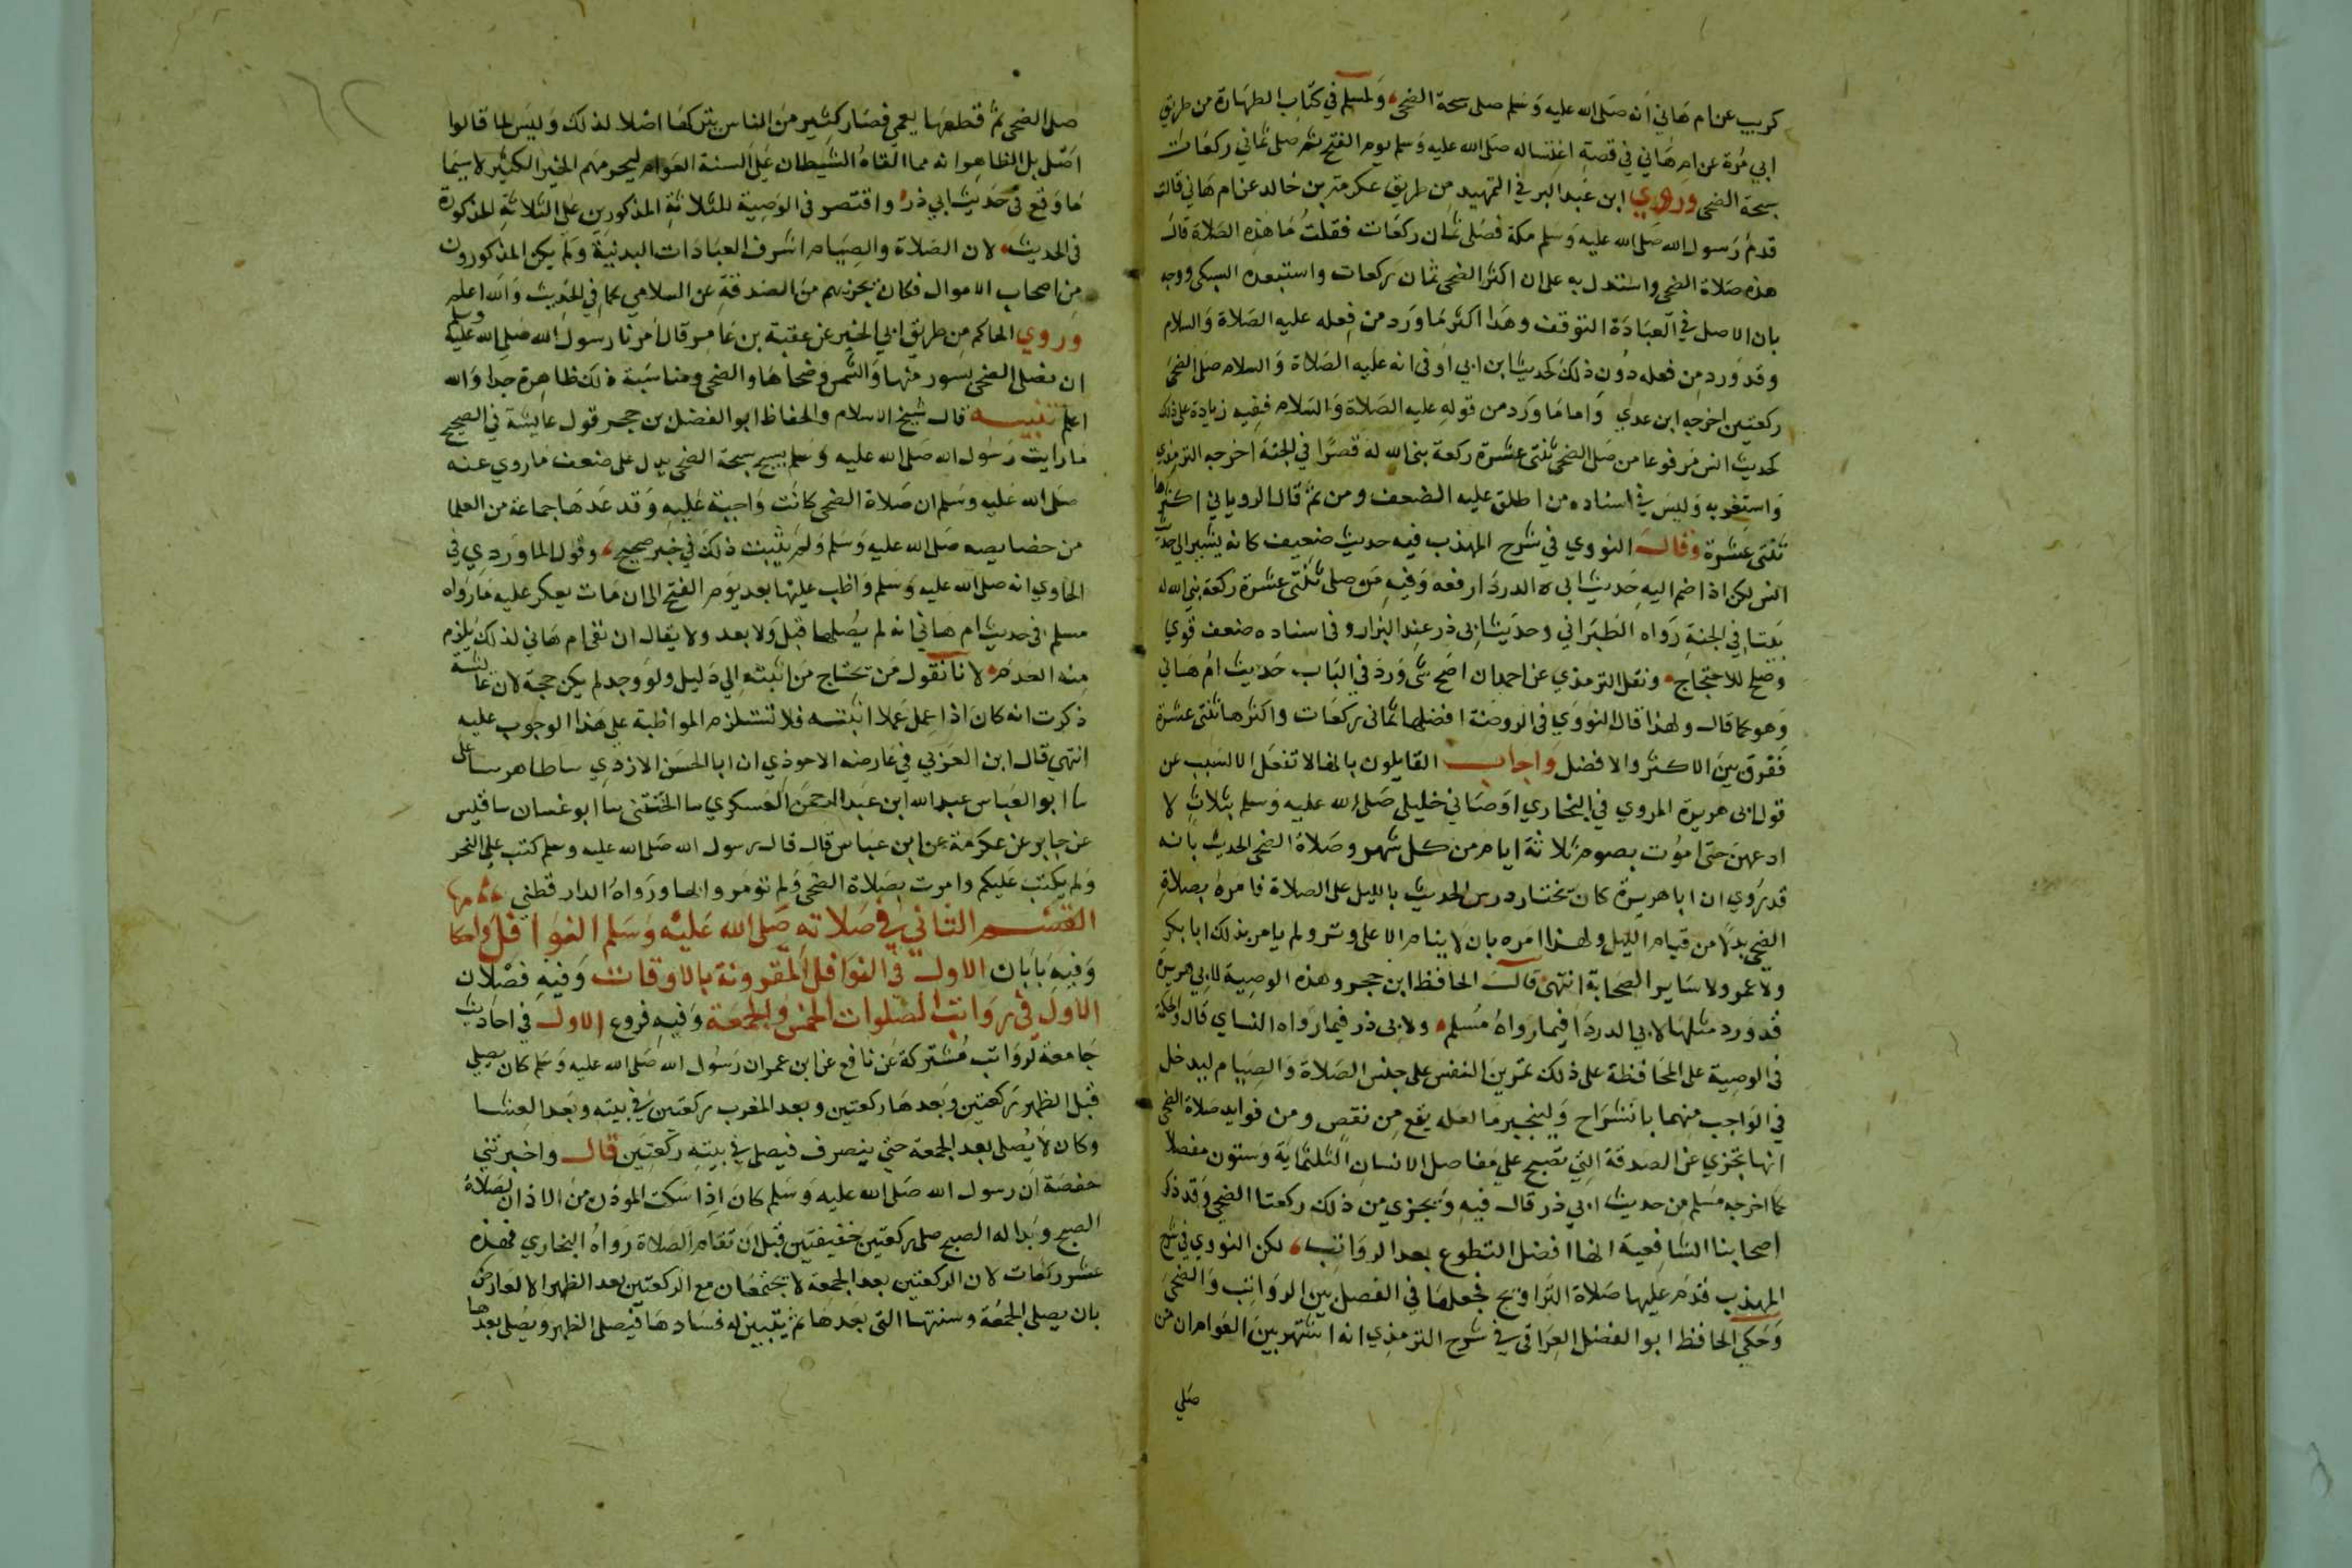 كريب عن ام هاني انه صلى الله عليه وسلم صلى سبحة الضحى، ولمسلم في كتاب الطهارة من طريق
ابي مرة عن ام هاني في قصة اغتساله صلى الله عليه وسلم يوم الفتح ثم صلى ثماني ركعات
سبحة الضحى وروي ابن عبد البر في التمهيد من طريق عكرمة بن خالد عن ام هاني قالت
قدم رسول الله صلى الله عليه وسلم مكة فصلى ثمان ركعات فقلت ما هذه الصلاة قال
هذه صلاة الضحى واستدل به على ان اكثر الضحى ثمان ركعات واستبعده السبكي ووجه
بان الاصل في العبادة التوقف وهذا اكثر ما ورد من فعله عليه الصلاة والسلام
وقد ورد من فعله دون ذلك كحديث ابن ابي اوفى انه عليه الصلاة والسلام صلى الضحى
ركعتين اخرجه ابن عدي واما ما ورد من قوله عليه الصلاة والسلام ففيه زيادة على ذلك
كحديث انس مرفوعا من صلى الضحى ثنتى عشرة ركعة بنى الله له قصرا في الجنة اخرجه الترمذي
واستغربه وليس في اسناده من اطلق عليه الضعف ومن ثم قال الروياني اكثرها
ثنتى عشرة وقال النووي في شرح المهذب فيه حديث ضعيف كانه يشير الى حديث
انس لكن اذا ضم اليه حديث ابى الدرداء رفعه وفيه من صلى ثنتى عشرة ركعة بنى الله له
بيتا في الجنة رواه الطبراني وحديث ابى ذر عند البزار وفى اسناده ضعف قوي
وصلح للاحتجاج، ونقل الترمذي عن احمد ان اصح شى ورد في الباب حديث ام هاني
وهو كما قال ولهذا قال النووي في الروضة افضلها ثمانى ركعات واكثرها ثنتى عشرة
ففرق بين الاكثر والافضل واجاب القايلون بانها لا تفعل الا لسبب عن
قول ابى هريرة المروي في البخاري اوصاني خليلي صلى الله عليه وسلم بثلاث لا
ادعهن حتى اموت بصوم ثلاثة ايام من كل شهر وصلاة الضحى الحديث بانه
قد روي ان ابا هريرة كان يختار درس الحديث بالليل على الصلاة فامره بصلاة
الضحى بدلا من قيام الليل ولهذا امره بان لا ينام الا على وتر ولم يامر بذلك ابا بكر
ولا عمر ولا ساير الصحابة انتهى قال الحافظ ابن حجر وهذه الوصية لابي هريرة
قد ورد مثلها لابي الدردا فيما رواه مسلم، ولابى ذر فيما رواه النساي قال والحكمة
فى الوصية على المحافظة على ذلك تمرين النفس على جنس الصلاة والصيام ليدخل
في الواجب منهما بانشراح ولينجبر ما لعله يقع من نقص ومن فوايد صلاة الضحى
انها تجزي عن الصدقة التي تصبح على مفاصل الانسان الثلثماية وستون مفصلا
كما اخرجه مسلم من حديث ابي ذر قال فيه ويجزي من ذلك ركعتا الضحى وقد ذكر
اصحابنا الشافعية انها افضل التطوع بعد الرواتب، لكن النووي في شرح
المهذب قدم عليها صلاة التراويح فجعلها في الفصل بين الرواتب والضحى
وحكى الحافظ ابو الفضل العراقى في شرح الترمذي انه اشتهر بين العوام ان من
صلي
صلى الضحى ثم قطعها يعمى فصار كثير من الناس يتركها اصلا لذلك وليس لما قالوا
اصل بل الظاهر انه مما القاه الشيطان على السنة العوام ليحرمهم الخير الكثير لا سيما
ما وقع في حديث ابي ذر، واقتصر في الوصية للثلاثة المذكورين على الثلاثة المذكورة
فى الحديث، لان الصلاة والصيام اشرف العبادات البدنية ولم يكن المذكورون
من اصحاب الاموال فكان يجزيهم من الصدقة عن السلامي كما في الحديث والله اعلم
وروي الحاكم من طريق ابي الخير عن عقبة بن عامر قال امرنا رسول الله صلى الله عليه وسلم
ان نصلى الضحى بسور منها والشمس وضحاها والضحى ومناسبة ذلك ظاهرة جدا والله
اعلم تنبيه قال شيخ الاسلام والحفاظ ابو الفضل بن حجر قول عايشة في الصحيح
ما رايت رسول الله صلى الله عليه وسلم يسبح سبحة الضحى يدل على ضعف ما روي عنه
صلى الله عليه وسلم ان صلاة الضحى كانت واجبة عليه وقد عدها جماعة من العلما
من خصايصه صلى الله عليه وسلم ولم يثبت ذلك في خبر صحيح، وقول الماوردي في
الحاوي انه صلى الله عليه وسلم واظب عليها بعد يوم الفتح الى ان مات يعكر عليه ما رواه
مسلم في حديث ام هاني انه لم يصلها قبل ولا بعد ولا يقال ان نفي ام هاني لذلك يلزم
منه العدم، لانا نقول من يحتاج من اثبته الى دليل ولو وجد لم يكن حجة لان عائشة
ذكرت انه كان اذا عمل عملا اثبته فلا تستلزم المواظبة على هذا الوجوب عليه
انتهي قال ابن العربي في عارضة الاحوذي ان ابا الحسن الازدي سا طاهر سا على
سا ابو العباس عبد الله ابن عبد الرحمن العسكري سا الختني سا ابو غسان سا قيس
عن جابر عن عكرمة عن ابن عباس قال قال رسول الله صلى الله عليه وسلم كتب علي النحر
ولم يكتب عليكم وامرت بصلاة الضحى ولم تؤمروا بها ورواه الدارقطني
القسم الثاني في صلاته صلى الله عليه وسلم النوافل واحكامها
وفيه بابان الاول في النوافل المقرونة بالاوقات وفيه فصلان
الاول في رواتب الصلوات الخمس والجمعة وفيه فروع الاول في احاديث
جامعة لرواتب مشتركة عن نافع عن ابن عمر ان رسول الله صلى الله عليه وسلم كان يصلي
قبل الظهر ركعتين وبعدها ركعتين وبعد المغرب ركعتين في بيته وبعد العشا
وكان لا يصلى بعد الجمعة حتى ينصرف فيصلى في بيته ركعتين قال واخبرتني
حفصة ان رسول الله صلى الله عليه وسلم كان اذا سكت الموذن من الاذان لصلاة
الصبح وبدا له الصبح صلى ركعتين خفيفتين قبل ان تقام الصلاة رواه البخاري فهذه
عشر ركعات لان الركعتين بعد الجمعة لا تجتمعان مع الركعتين بعد الظهر الا لعارض
بان يصلى الجمعة وسنتها التى بعدها ثم يتبين له فسادها فيصلى الظهر ويصلى بعدها